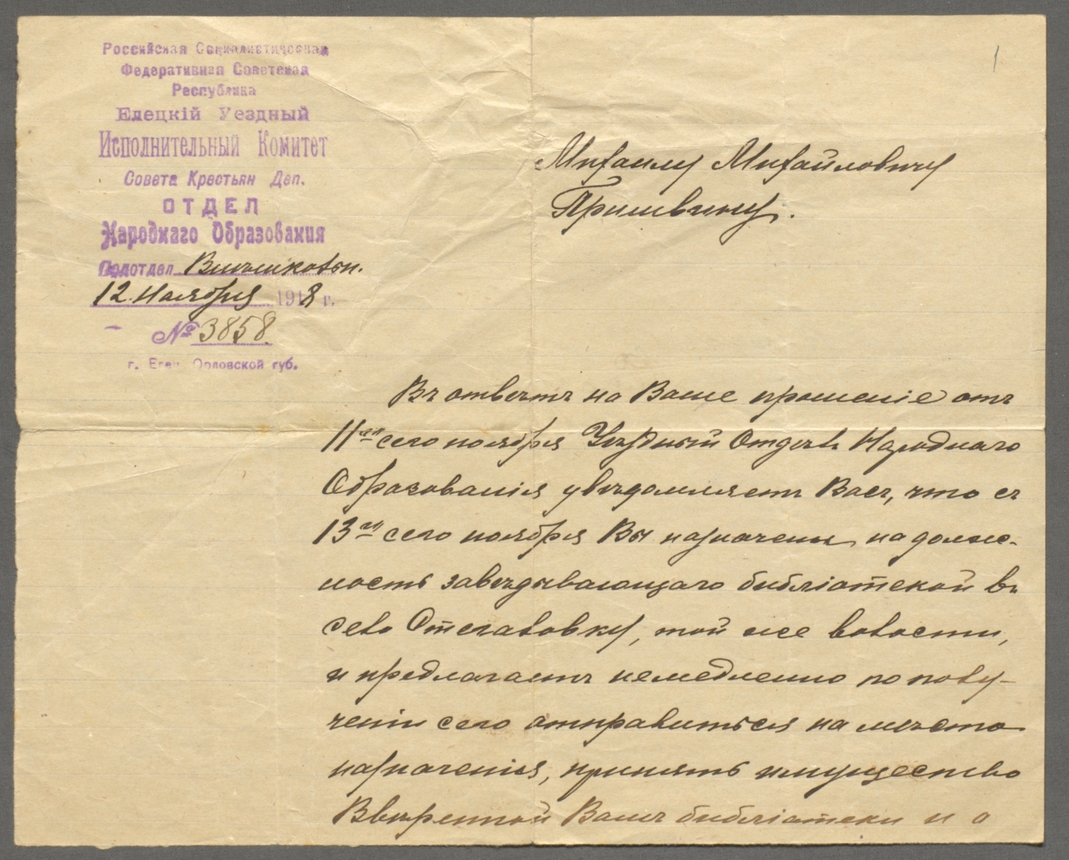 Российская Социалистическая
Федеративная Советская
Республика
Елецкій Уездный
Исполнительный Комитет
Совета Крестьян Деп.
ОТДЕЛ
Народнаго Образования
Подотдел Внѣшкольн.
12 Ноября 1918 г.
№ 3858
г. Елец Орловской губ.
1
Михаилу Михайловичу
Пришвину.
Въ отвѣтъ на Ваше прошеніе отъ
11го сего ноября Уѣздный Отдѣлъ Народнаго
Образованія увѣдомляетъ Васъ, что съ
13го сего ноября Вы назначены на долж-
ность завѣдывающаго библіотекой въ
село Стегаловку, той же волости,
и предлагаетъ немедленно по полу-
ченіи сего отправиться на мѣсто
назначенія, принять имущество
Ввѣренной Вамъ библіотеки и о